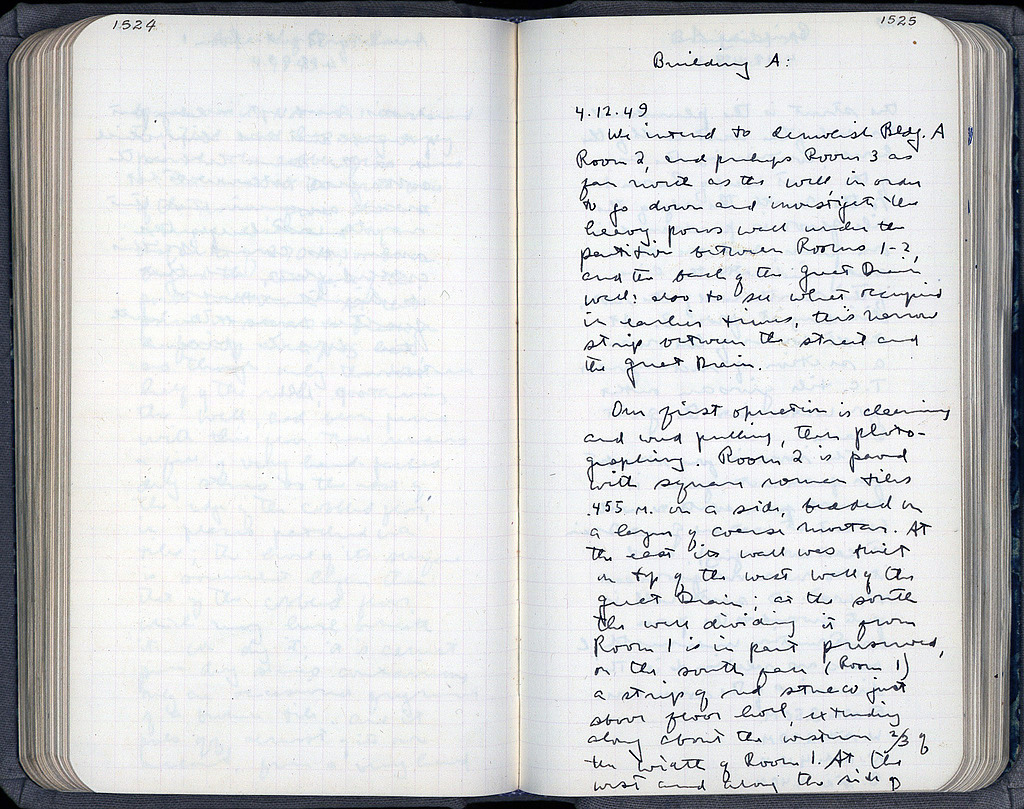 1524
1525
Building A:
4.12.49
We intend to demolish Bldg. A
Room 2, and perhaps Room 3 as
far north as the well, in order
to go down and investigate the
heavy poros wall under the
partition between Rooms 1-2,
and the back of the Great Drain
wall: also to see what occupied
in earlier times, this narrow
strip between the street and
the great Drain.
Our first operation is cleaning
and weed pulling, then photo-
graphing. Room 2 is paved
with square roman tiles
.455 M. on a side, bedded in
a layer of coarse mortar. At
the east its wall was built
on top of the west wall of the
great Drain; at the south
the wall dividing it from
Room 1 is in part preserved,
on the south face (Room 1)
a strip of red stucco just
above floor level, extending
along about the western 2/3 of
the width of Room 1. At the
west and along the side of